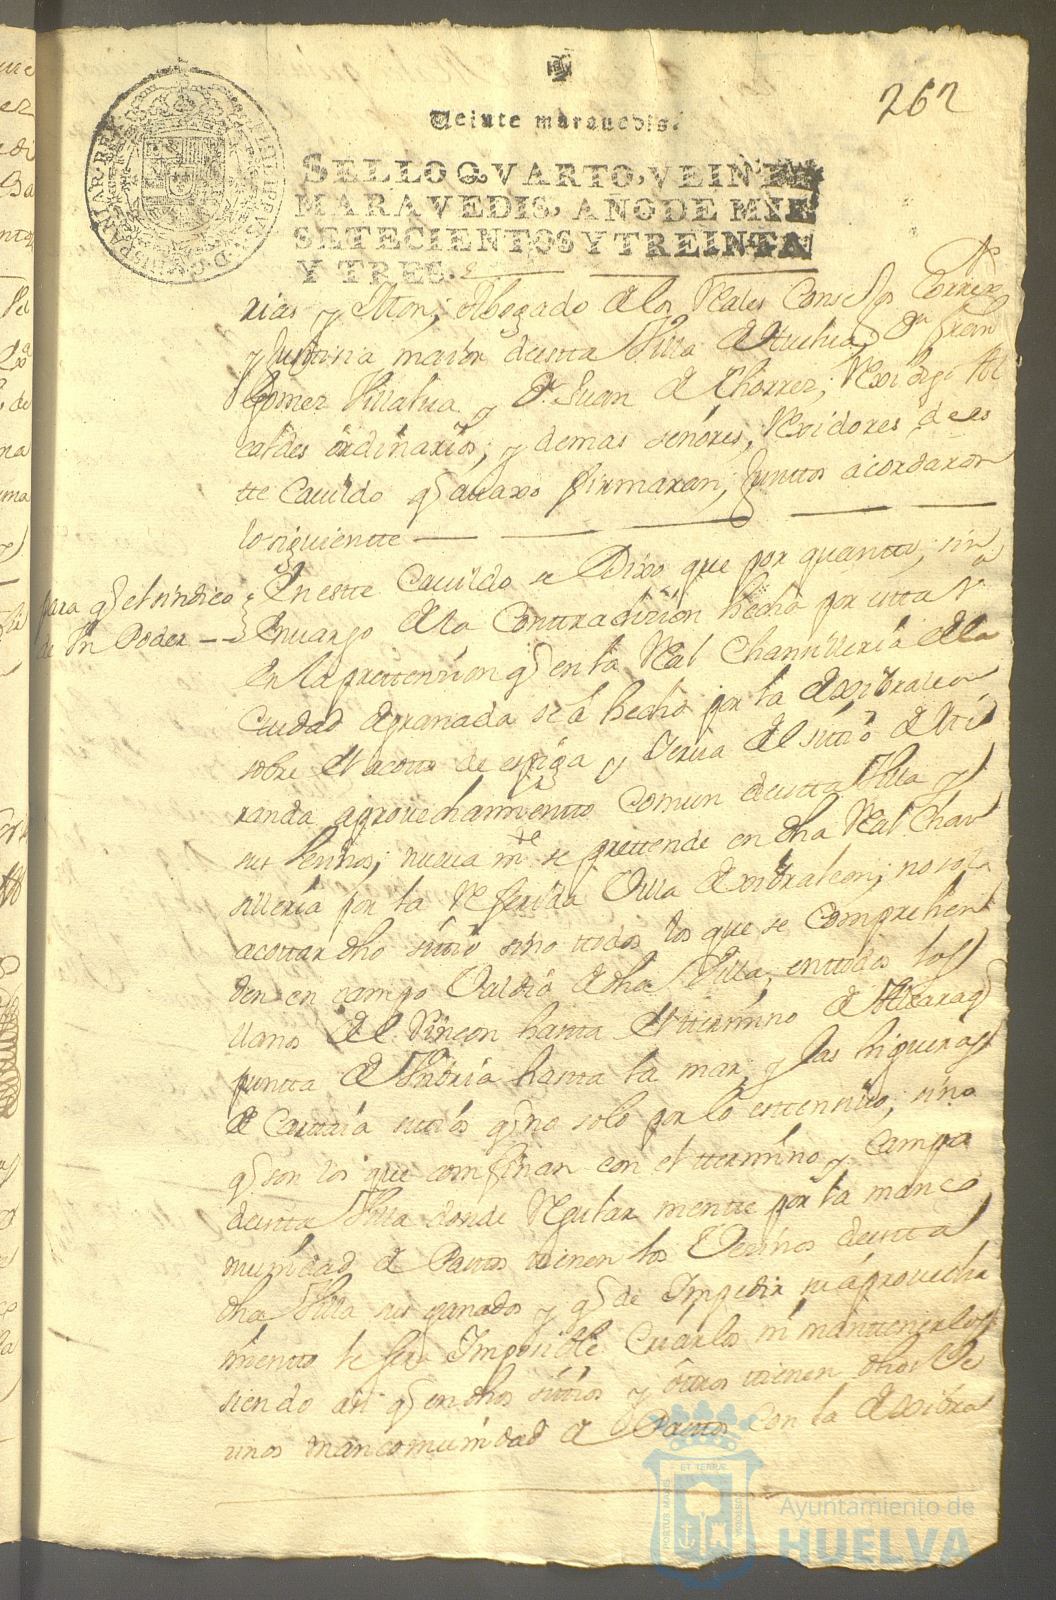 262
Veinte maravedis.
SELLO QVARTO, VEINTE
MARAVEDIS, AÑO DE MIL
SETECIENTOS Y TREINTA
Y TRES.
rias y Mon; Abogado de los Reales Consejos Correx
y Justizia maior de esta Villa de Huelva; Dn Fran
Gomez Villalua y Dn Juan de Chorrez; Al
caldes ordinarios; y demas señores, Rexidores de es
tte Cavildo q avaxo firmaran; Junttos acordaron
lo siguientte
para q el sindico
de Un Poder
En estte Cavildo se Dixo que por quantto; sin
envargo de la Conttradizion hecha por estta Va
en la prettension q en la Real Chanzilleria de la
Ciudad de granada se á hecho por la de xibraleon
sobre el acotto de espiga y Yerva del sittio de
randa aprovechamientto Comun de estta Villa y
sus Vezinos; nueva mte se prettende en dha Real Chan
silleria por la Referida Villa de xibraleon; no solo
acottar dho sittio sino ttodos los que se Comprehen
den en campo Valdio de dha Villa; en ttodos los
llanos del Rincon hasta el ttermino de Aljaraq
puntta de Umbria hasta la mar; y las higueras
de Carttaia sittios q no solo por lo esttensivo; sino
q son los que confinan con el ttermino y Campo
de estta Villa donde Regular mentte por la manco
munidad de Pasttos ttienen los Vezinos de estta
dha Villa sus ganados y q de Impedir su aprovecha
mientto le sera Imposible Criarlos ni manttenerlos
siendo asi q en dhos sittios y ottros ttienen dhos Ve
zinos mancomunidad de Pasttos Con la de xibra
PORTUS MARIS
ET TERRÆ
CUSTODIA
Ayuntamiento de
HUELVA